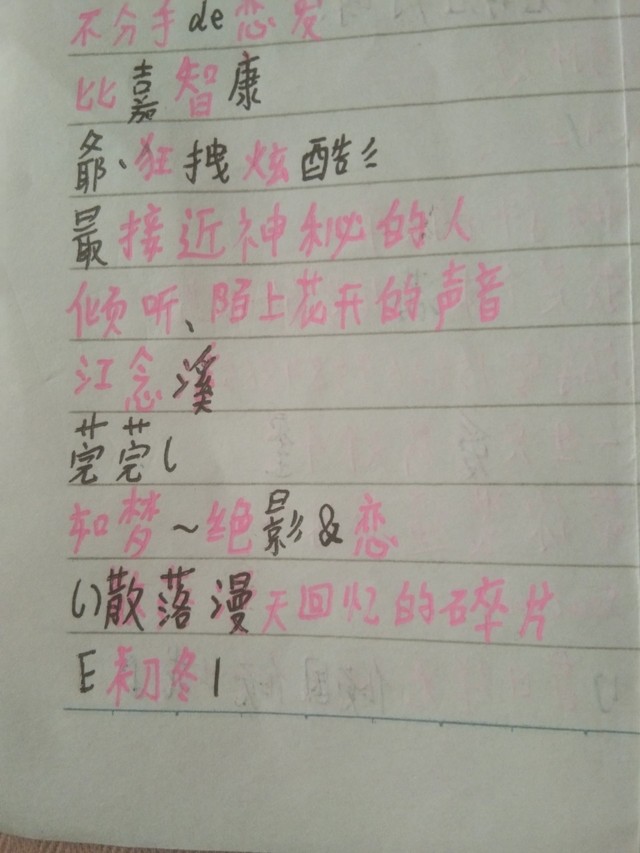 不分手de恋爱
比嘉智康
爺、狂拽炫酷彡
最接近神秘的人
倾听、陌上花开的声音
江念溪
莞莞(
如梦~绝影&恋
()散落漫天回忆的碎片
E初冬1